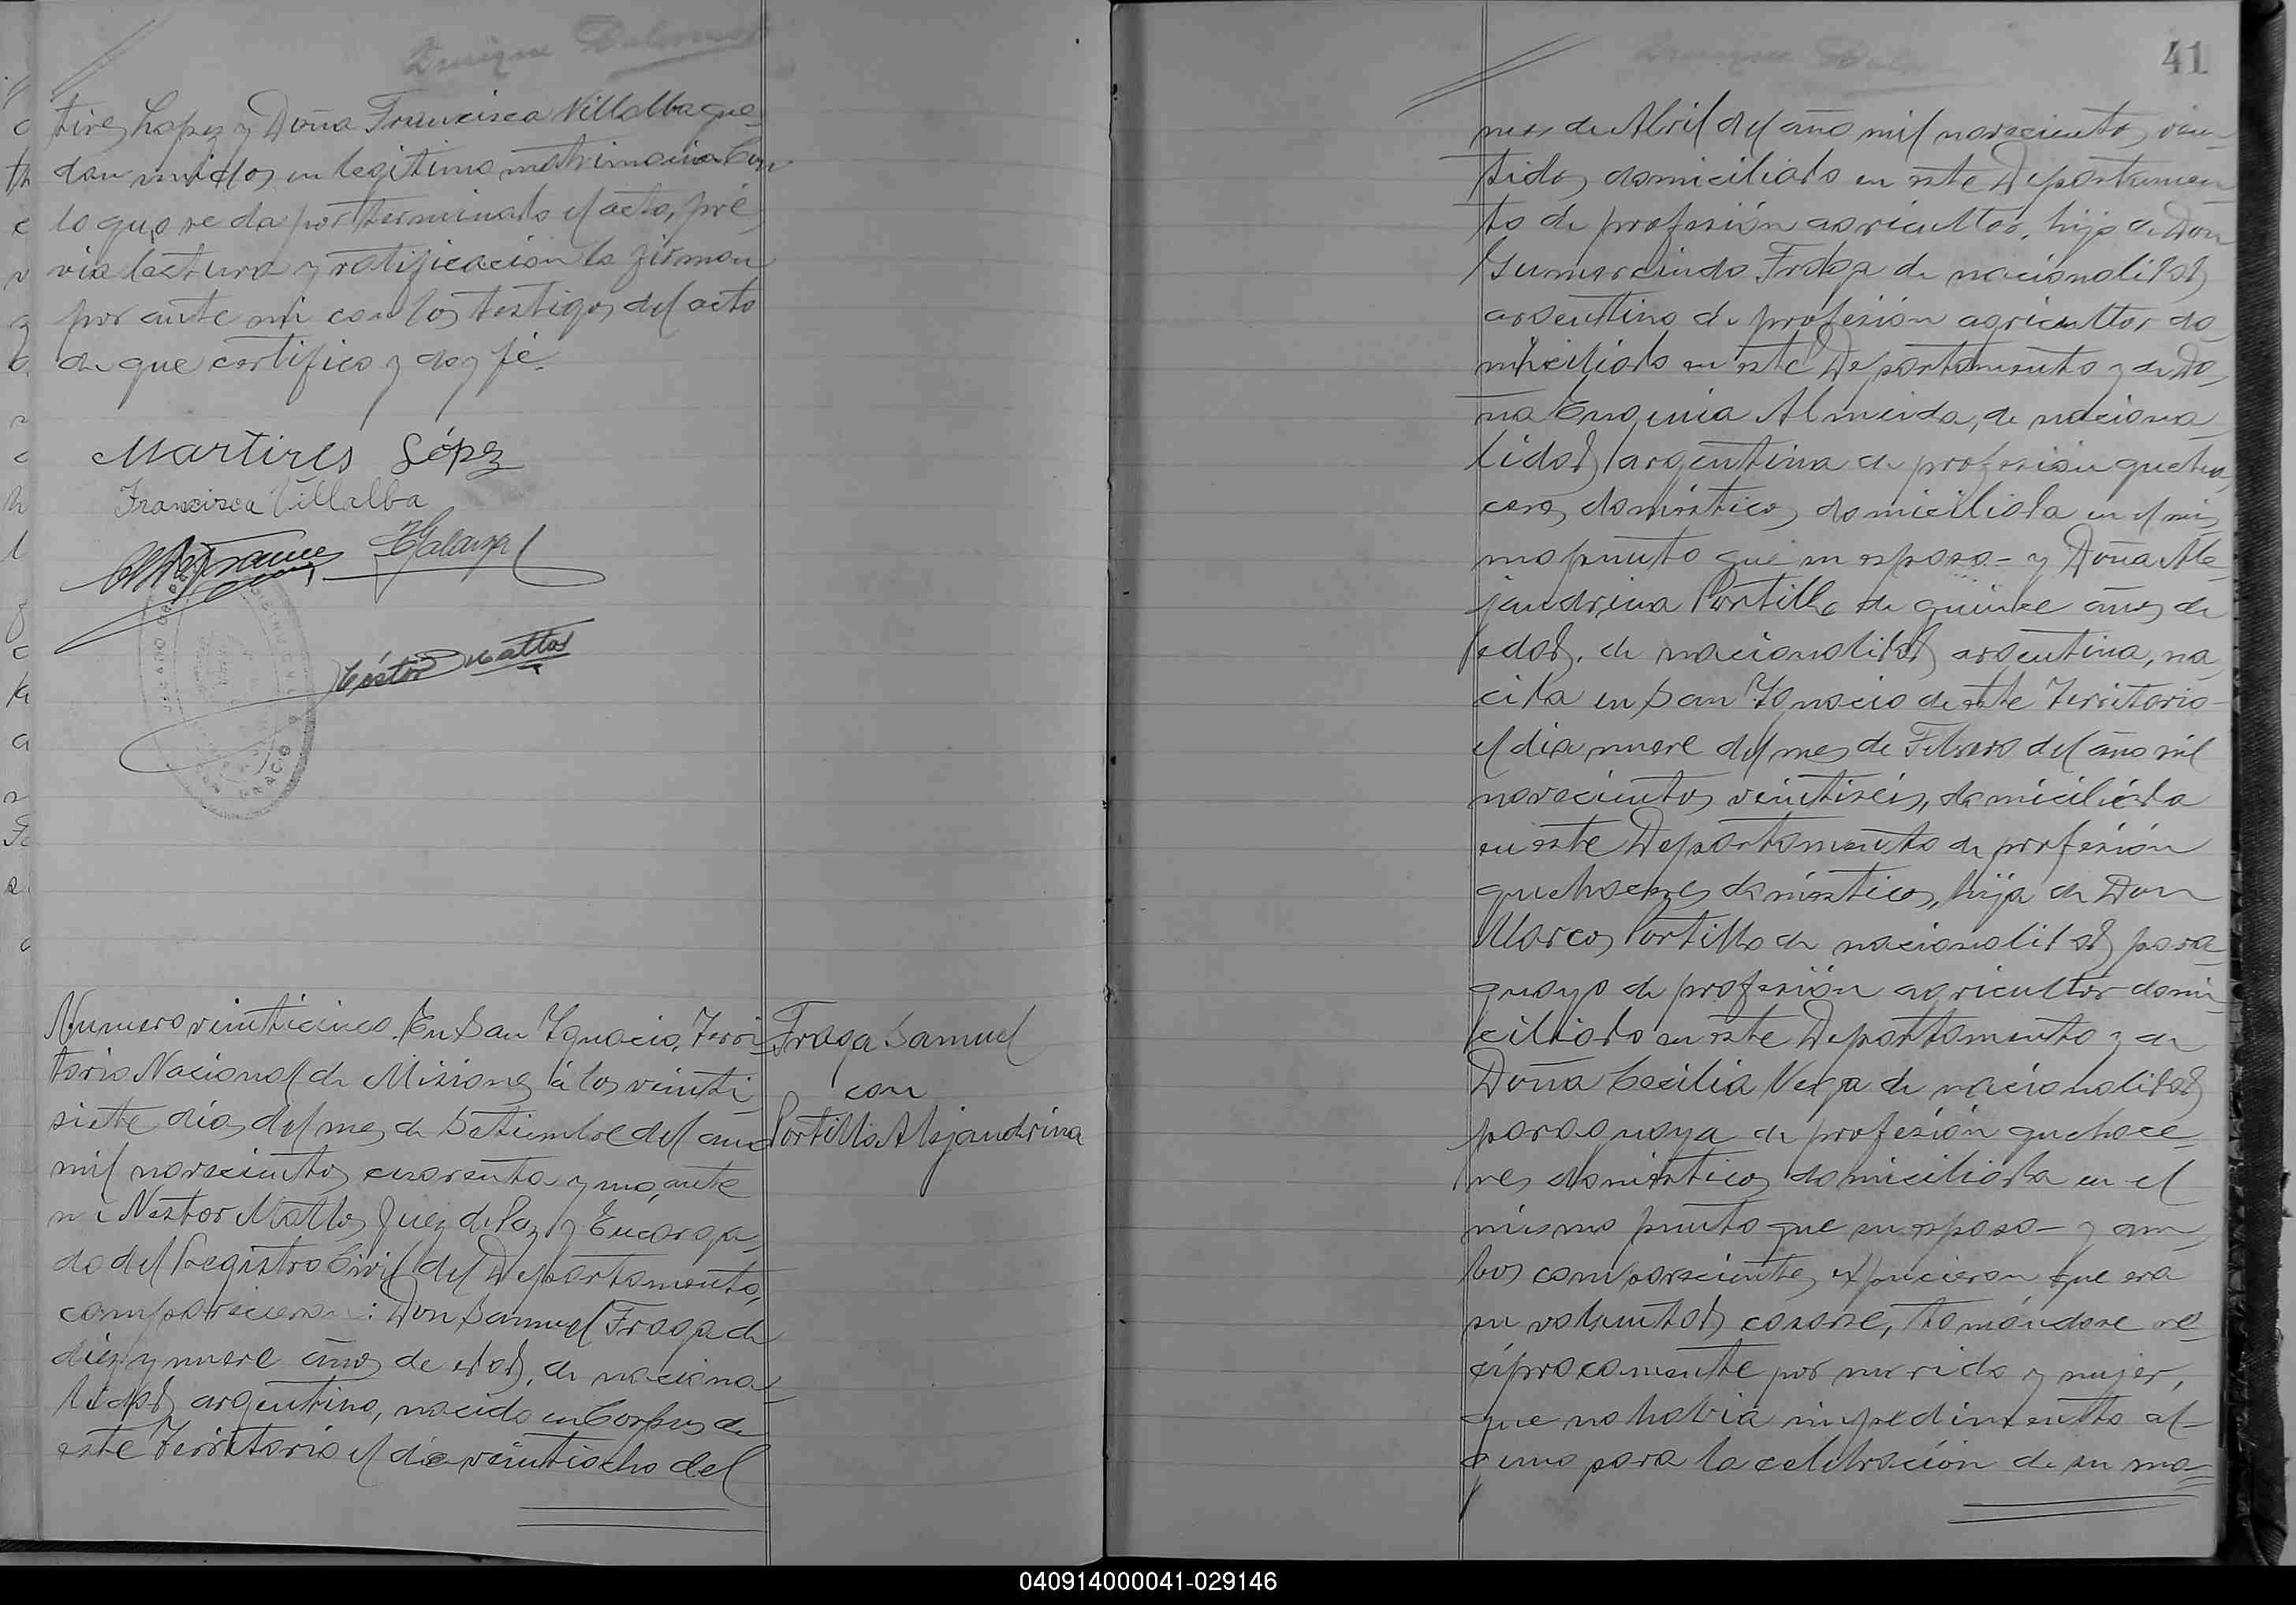 tires Lopez y Doña Francisca Villalba que-
dan unidos en legitimo matrimonio Con
lo que se da por terminado el acto, pré
via lectura y ratificación la firman
por ante mi con los testigos del acto
de que certifico y doy fé.
Martires López
Francisca Villalba
Galarza
Néstor Mattos
Numero veinticinco. En San Ygnacio, Terri-
torio Nacional de Misiones á los veinti-
siete días del mes de Setiembre del año
mil novecientos cuarenta y uno, ante
mi Nestor Mattos Juez de Paz y Encarga-
do del Registro Civil del Departamento,
comparecieron: Don Samuel Fraga de
diez y nueve años de edad, de naciona-
lidad argentino, nacido en Corpus de
este Territorio el día veintiocho del
Fraga Samuel
con
Portillo Alejandrina
41
mes de Abril del año mil novecientos vein-
tidos, domiciliado en este Departamen-
to de profesión agricultor, hijo de Don
Gumercindo Fraga de nacionalidad
argentino de profesión agricultor do-
miciliado en este Departamento y de Do-
ña Eugenia Almeida, de naciona-
lidad argentina de profesión queha-
ceres domésticos domiciliada en el mis-
mo punto que su esposo - y Doña Ale-
jandrina Portillo de quince años de
edad, de nacionalidad argentina, na-
cida en San Ygnacio de este Territorio
el día nueve del mes de Febrero del año mil
novecientos veintiseis, domiciliada
en este Departamento de profesión
quehaceres domésticos, hija de Don
Marcos Portillo de nacionalidad para-
guayo de profesión agricultor domi-
ciliado en este Departamento y de
Doña Cecilia Vega de nacionalidad
paraguaya de profesión quehace-
res domésticos domiciliada en el
mismo punto que su esposo - y am-
bos comparecientes expucieron que era
su voluntad casarse, tomándose re-
ciprocamente por marido y mujer,
que no habia impedimento al-
guno para la celebración de su ma-
040914000041-029146